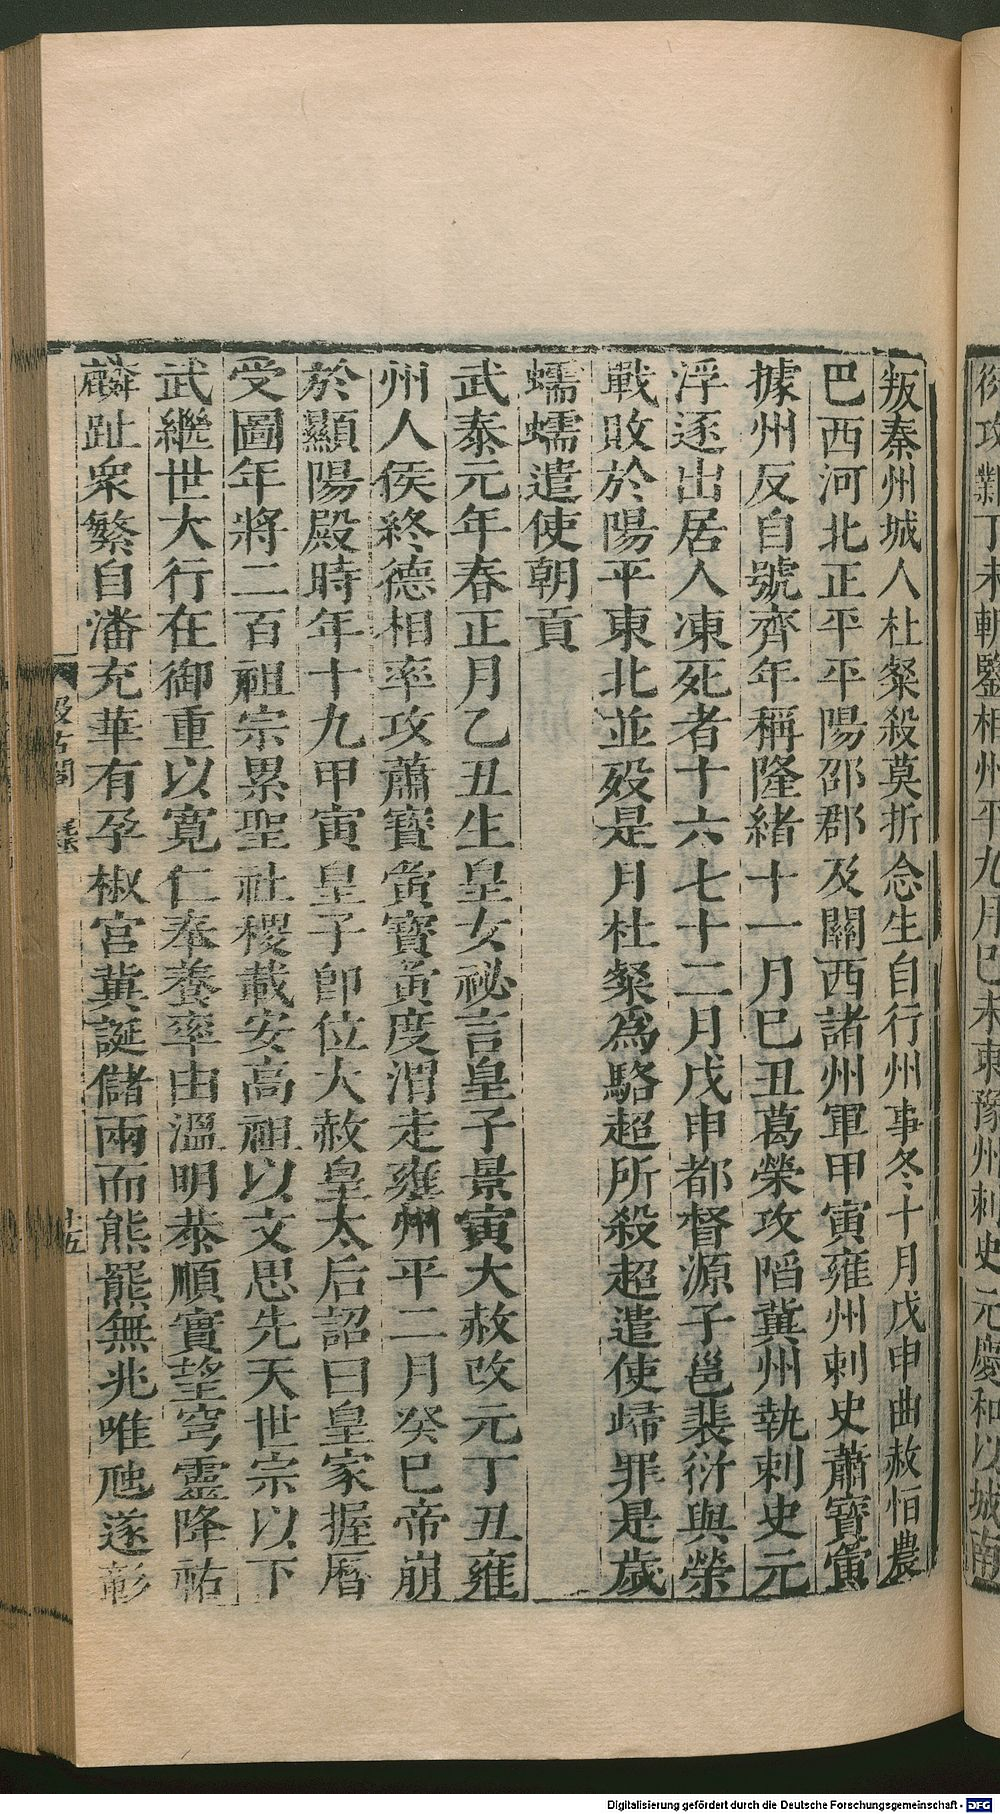 後攻鄴丁未斬鑒相州平九月己未東豫州刺史元慶和以城南
叛秦州城人杜粲殺莫折念生自行州事冬十月戊申曲赦恒農
巴西河北正平平陽邵郡及關西諸州軍甲寅雍州刺史蕭寶寅
據州反自號齊年稱隆緒十一月巳丑葛榮攻陷冀州執刺史元
浮逐出居人凍死者十六七十二月戊申都督源子邕裴衍與榮
戰敗於陽平東北並歿是月杜粲爲駱超所殺超遣使歸罪是歲
蠕蠕遣使朝貢
武泰元年春正月乙丑生皇女祕言皇子景寅大赦改元丁丑雍
州人侯終德相率攻蕭寶夤寶夤度渭走雍州平二月癸巳帝崩
於顯陽殿時年十九甲寅皇子卽位大赦皇太后詔曰皇家握曆
受圖年將二百祖宗累聖社稷載安高祖以文思先天世宗以下
武繼世大行在御重以寬仁奉養率由溫明恭順實望穹靈降祐
麟趾衆繁自潘充華有孕椒宮冀誕儲兩而熊羆無兆唯虺遂彰
汲古閣
十五
Digitalisierung gefördert durch die Deutsche Forschungsgemeinschaft - DFG